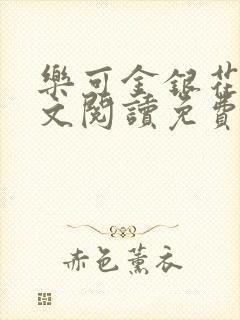 樂可金銀花
文閱讀免費
赤色薰衣